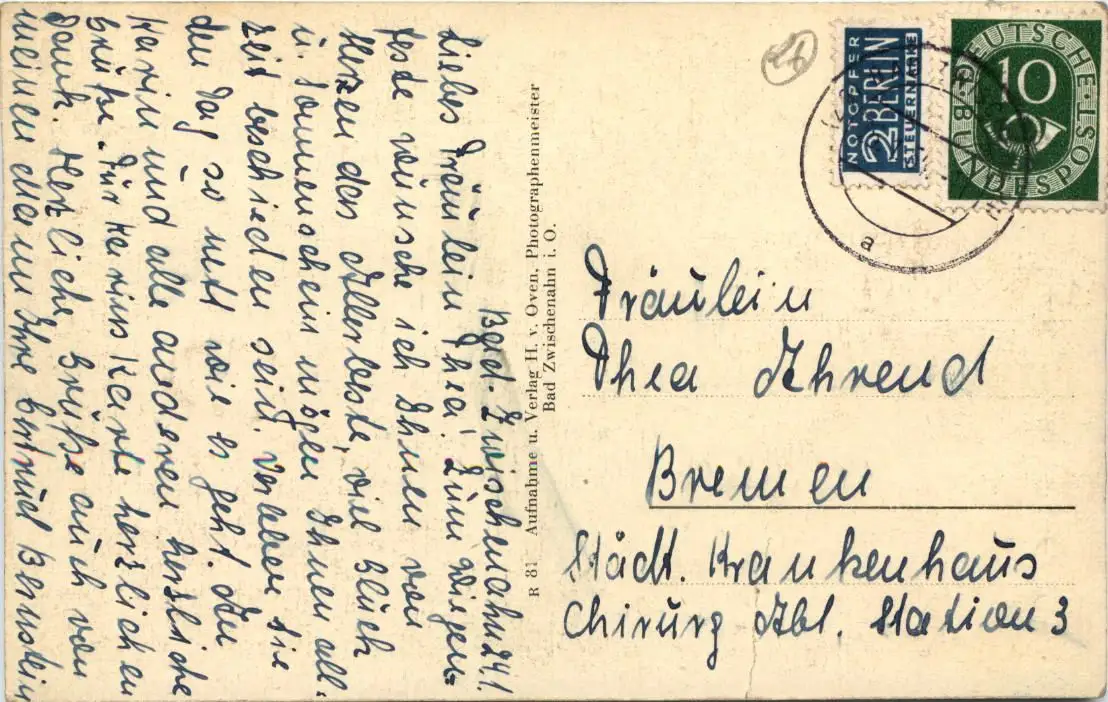 Bad-Zwischenahn 24.1.
Liebes Fräulein Thea! Zum Wiegen-
feste wünsche ich Ihnen von
Herzen das Allerbeste, viel Glück
u. Sonnenschein mögen Ihnen all-
zeit beschieden sein. Verleben Sie
den Tag so nett wie es geht. An
Karin und alle anderen herzliche
Grüße. Für Karins Karte herzlichen
Dank. Herzliche Grüße auch von
meinem Mann Ihre Gertrud Bernstein
R 81 Aufnahme u. Verlag H. v. Oven, Photographenmeister
Bad Zwischenahn i. O.
26
NOTOPFER
2 BERLIN
STEUERMARKE
DEUTSCHE BUNDESPOST
10
a
Fräulein
Thea Ahrend
Bremen
Städt. Krankenhaus
Chirurg Abt. Station 3